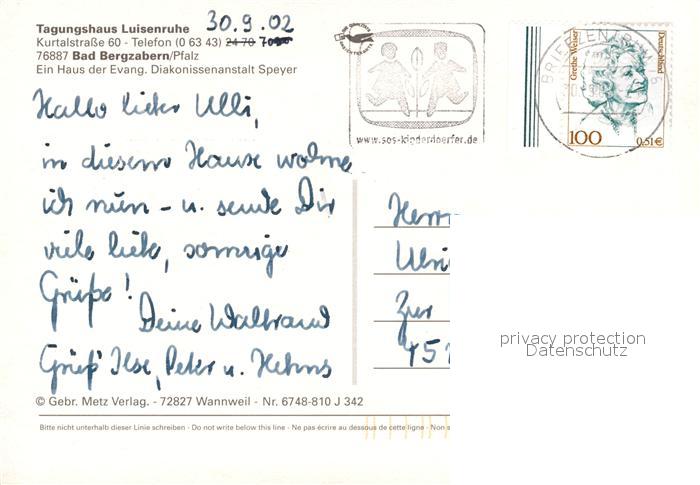 Tagungshaus Luisenruhe 30.9.02
Kurtalstraße 60 - Telefon (0 63 43) 24 70
76887 Bad Bergzabern/Pfalz
Ein Haus der Evang. Diakonissenanstalt Speyer
Hallo lieber Ulli,
in diesem Hause wohne
ich nun - u. sende Dir
viele liebe, sonnige
Grüße!
Deine Waltraud
Grüß' Ilse, Peter u.
www.sos-kinderdoerfer.de
BRIEFZENTRUM
Grethe Weiser
Deutschland
100 0,51€
Herrn
Ulri
Zur
451
privacy protection
Datenschutz
© Gebr. Metz Verlag. - 72827 Wannweil - Nr. 6748-810 J 342
Bitte nicht unterhalb dieser Linie schreiben - Do not write below this line - Ne pas écrire au dessous de cette ligne - Non s